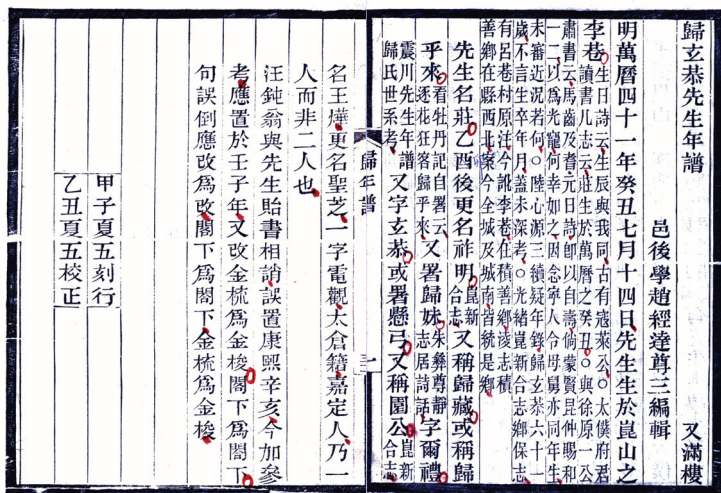 歸玄恭先生年譜 又滿樓
邑後學趙經達尊三編輯
明萬曆四十一年癸丑七月十四日先生生於崑山之
李巷 生日詩云生辰與我同古有寇萊公○太僕府君
讀書几志云莊生於萬曆之癸丑○與徐原一公
肅書云馬齒及耆元日詩卽以自壽倘蒙賢昆仲賜和
一二以爲光寵何幸如之因念寧人令母舅亦同年生
未審近況若何○陸心源三續疑年錄歸玄恭六十一
歲不言生卒年月蓋未深考○光緒崑新合志鄉保志
有呂巷村原注今訛李巷住積善鄉淩志積
善鄉在縣西北梁今全城及城南皆統是鄉
先生名莊乙酉後更名祚明 崑新合志 又稱歸藏或稱歸
乎來 看牡丹記自署云逐花狂客歸乎來 又署歸妹 朱彝尊靜志居詩話 字爾禮
震川先生年譜歸氏世系考 又字玄恭或署懸弓又稱園公 崑新合志
歸年譜 一
三
名王燁更名聖芝一字電觀太倉籍嘉定人乃一
人而非二人也
汪鈍翁與先生貽書相誚誤置康熙辛亥今加參
考應置於壬子年又改金梳爲金梭閣下爲閤下
句誤倒應改爲改閣下爲閤下金梳爲金梭
甲子夏五刻行
乙丑夏五校正